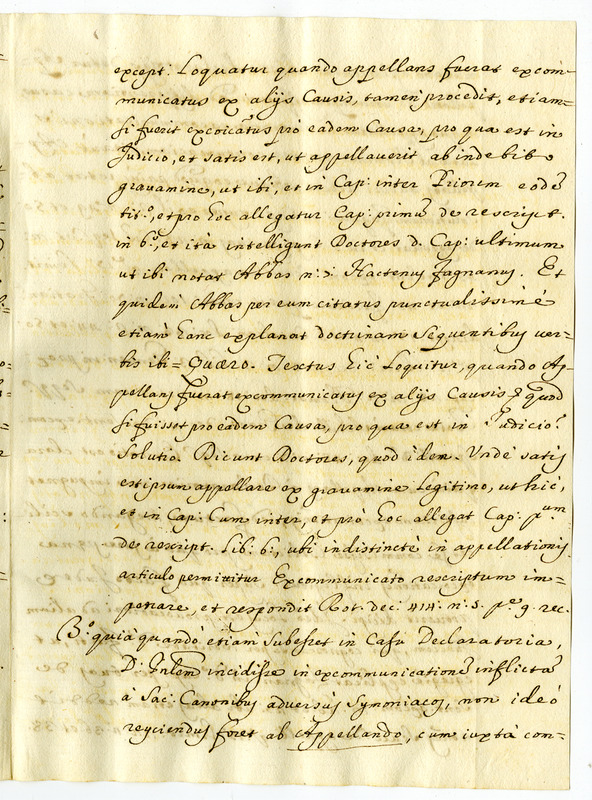 except: Loquatur quando appellans fuerat excom=
municatus ex alijs Causis, tamen procedit, etiam=
si fuerit excoicatus pro eadem Causa, pro qua est in
Judicio, et satis est, ut appellauerit ab indebito
grauamine, ut ibi, et in Cap: inter Priorem eodẽ
tit.º, et pro hoc allegatur Cap: primũ de rescript.
in 6.º, et ità intelligunt Doctores d. Cap: ultimum
ut ibi notat Abbas n: Hactenus Fagnanus. Et
quidem Abbas per eum citatus punctualissimè
etiam hanc explanat doctrinam sequentibus uer=
bis ibi= Quæro. Textus hic Loquitur, quando Ap=
pellans fuerat excommunicatus ex alijs Causis, quod
si fuisset pro eadem Causa, pro qua est in Judicio?
Solutio. Dicunt Doctores, quod idem. Undè satis
est ipsum appellare ex grauamine Legitimo, ut hic,
et in Cap: Cum inter, et prò hoc allegat Cap: pum
de rescript. Lib: 6:, ubi indistinctè in appellationis
articulo permittitur Excommunicato rescriptum im=
petrare, et respondit Rot. dec: 414. n: 5. pe. 9. rec.
B.º quià quandò etiam subesset in Casu Declaratoria,
D: Inlem incidisse in excommunicationẽ inflictã
à Sac: Canonibus aduersùs Symoniacos, non ideò
reyciendus foret ab Appellando, cum iuxtà com=